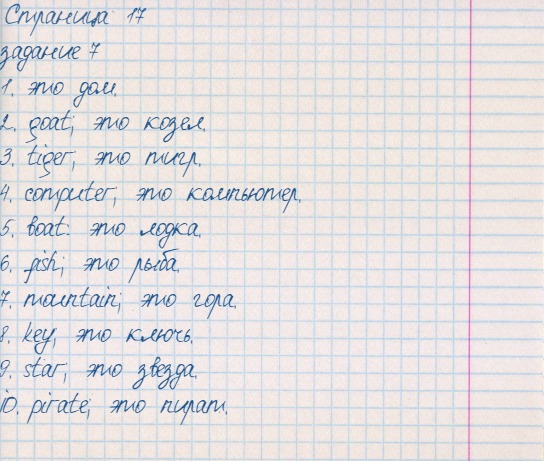 Страница 17
задание 7
1. это дом.
2. goat; это козел.
3. tiger; это тигр.
4. computer; это компьютер.
5. boat: это лодка.
6. fish; это рыба.
7. mountain; это гора.
8. key; это ключь.
9. star; это звезда.
10. pirate; это пират.